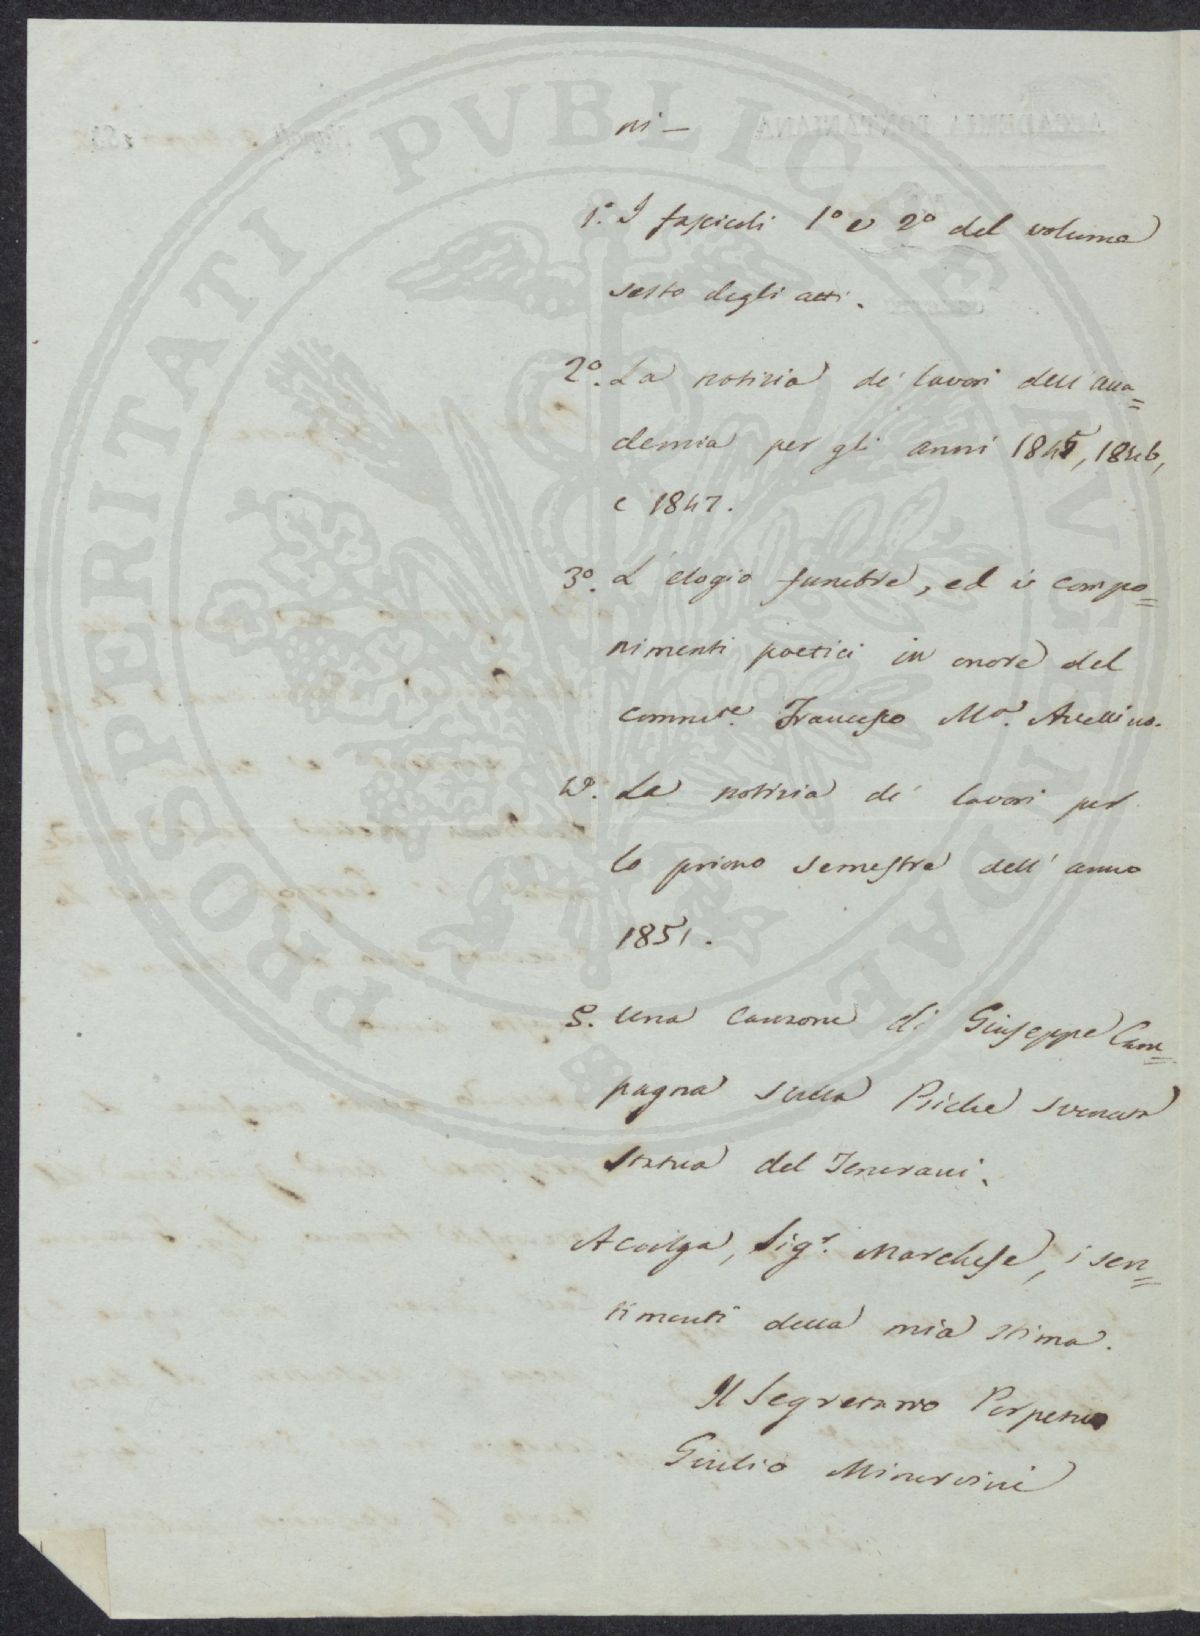 ni –
1.° I fascicoli 1° e 2° del volume
sesto degli atti.
2°. La notizia de' lavori dell'acca=
demia per gli anni 1845, 1846,
e 1847.
3°. L'elogio funebre, ed i compo=
nimenti poetici in onore del
commre. Francesco Ma. Avellino.
4°. La notizia de' lavori per
lo primo semestre dell'anno
1851.
5. Una canzone di Giuseppe Cam=
pagna sulla Psiche svenuta
statua del Tenerani.
Accolga, Sigr. Marchese, i sen=
timenti della mia stima.
Il Segretario Perpetuo
Giulio Minervini
PROSPERITATI PVBLICAE AVGENDAE